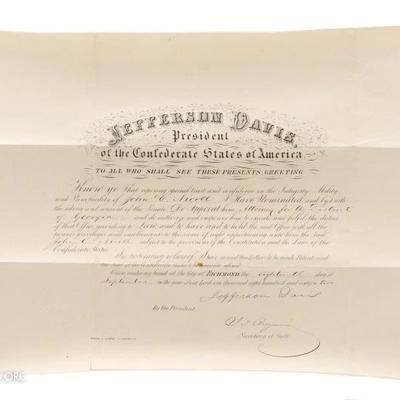 JEFFERSON DAVIS,
President
of the Confederate States of America
TO ALL WHO SHALL SEE THESE PRESENTS, GREETING
Know ye That reposing special trust and confidence in the Integrity, Ability,
and Punctuality of John C. Nicoll I Have Nominated, and by & with
the advice and consent of the Senate, Do Appoint him Attorney for the District
of Georgia and do authorize and empower him to execute and fulfil the duties
of that Office according to Law, and to have and to hold the said Office with all the
powers privileges and emoluments to the same of right appertaining unto him the said
John C. Nicoll subject to the provisions of the Constitution and the Laws of the
Confederate States.
In testimony whereof I have caused these Letters to be made Patent, and
the Seal of the Confederate States to be hereunto affixed
Given under my hand at the City of RICHMOND the eighteenth day of
September in the year of our Lord one thousand eight hundred and sixty two
Jefferson Davis
By the President,
Secretary of State